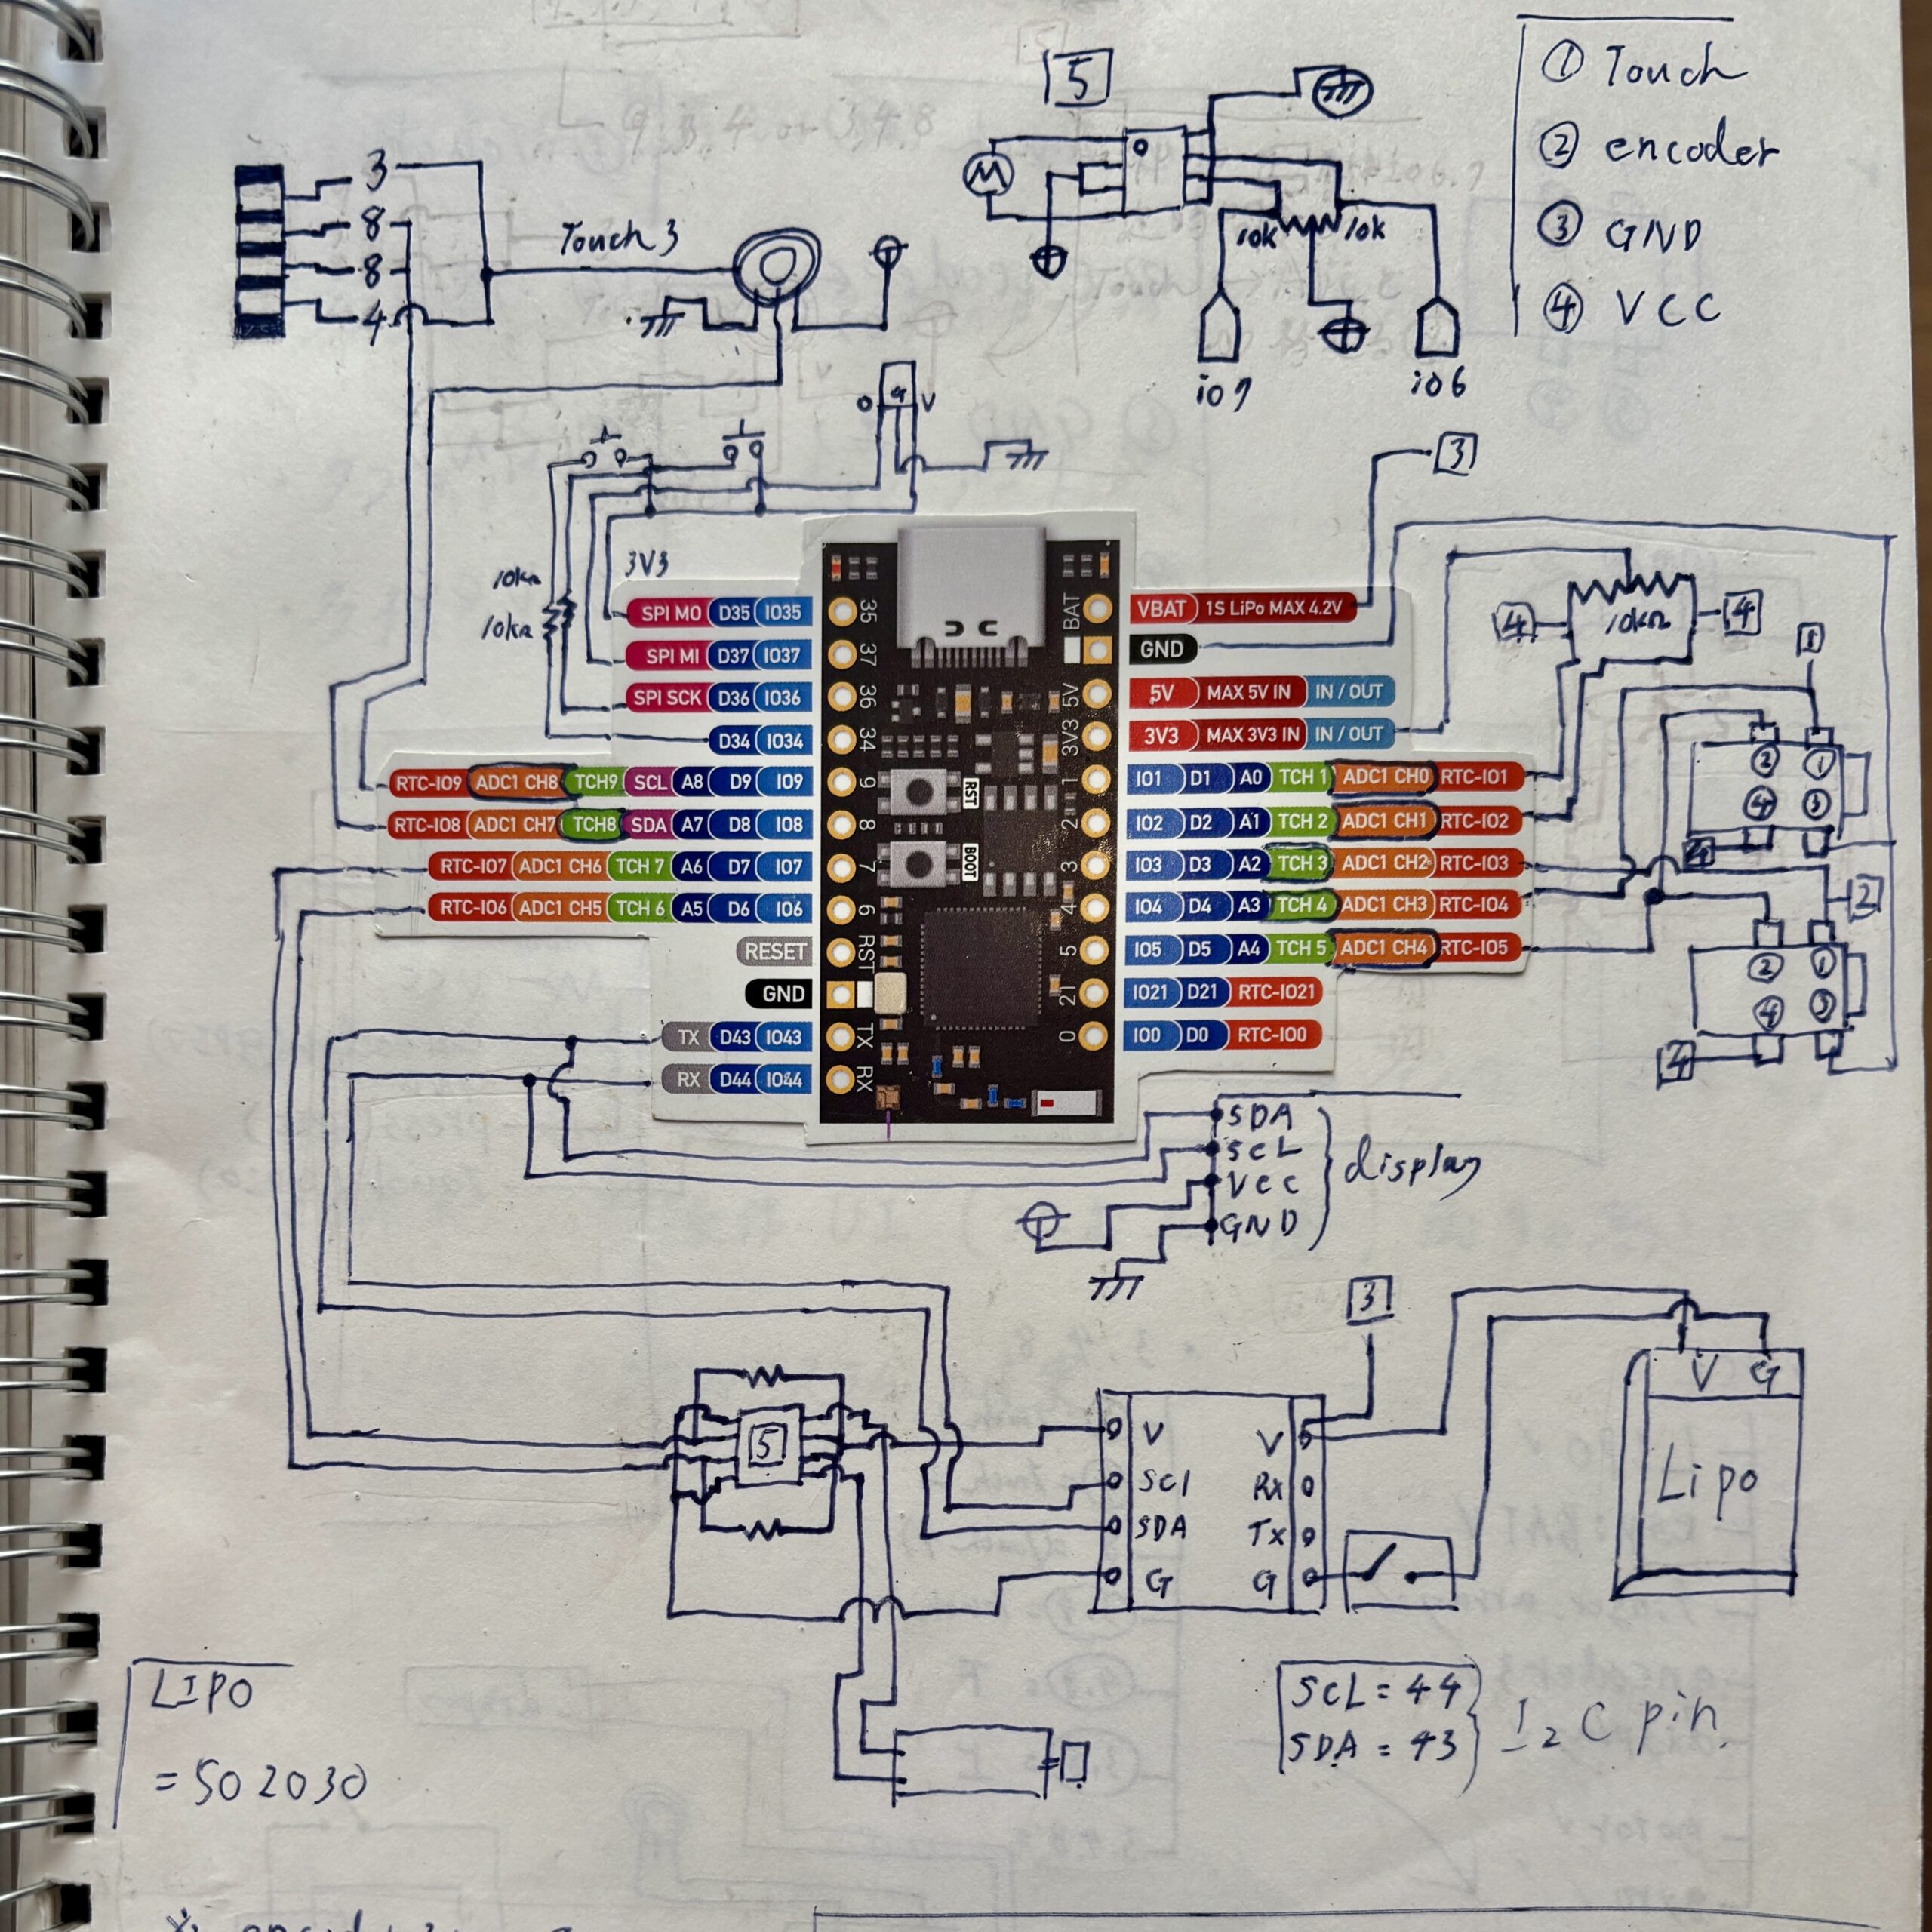 5
① Touch
② encoder
③ GND
④ VCC
3
8
8
4
Touch 3
M
10k
10k
io7
io6
O G V
3
10kΩ
10kΩ
3V3
4
10kΩ
4
1
SPI MO D35 IO35
SPI MI D37 IO37
SPI SCK D36 IO36
D34 IO34
RTC-IO9 ADC1 CH8 TCH9 SCL A8 D9 IO9
RTC-IO8 ADC1 CH7 TCH8 SDA A7 D8 IO8
RTC-IO7 ADC1 CH6 TCH 7 A6 D7 IO7
RTC-IO6 ADC1 CH5 TCH 6 A5 D6 IO6
RESET
GND
TX D43 IO43
RX D44 IO44
35
37
36
34
9
8
7
6
RST
TX
RX
RST
BOOT
BAT
5V
3V3
1
2
3
4
5
21
0
VBAT 1S LiPo MAX 4.2V
GND
5V MAX 5V IN IN / OUT
3V3 MAX 3V3 IN IN / OUT
IO1 D1 A0 TCH 1 ADC1 CH0 RTC-IO1
IO2 D2 A1 TCH 2 ADC1 CH1 RTC-IO2
IO3 D3 A2 TCH 3 ADC1 CH2 RTC-IO3
IO4 D4 A3 TCH 4 ADC1 CH3 RTC-IO4
IO5 D5 A4 TCH 5 ADC1 CH4 RTC-IO5
IO21 D21 RTC-IO21
IO0 D0 RTC-IO0
② ①
④ ③
2
② ①
④ ③
4
SDA
SCL
VCC
GND
display
3
5
V V
Scl Rx
SDA Tx
G G
V G
Lipo
LIPO
= 502030
SCL = 44
SDA = 43
I2C pin.